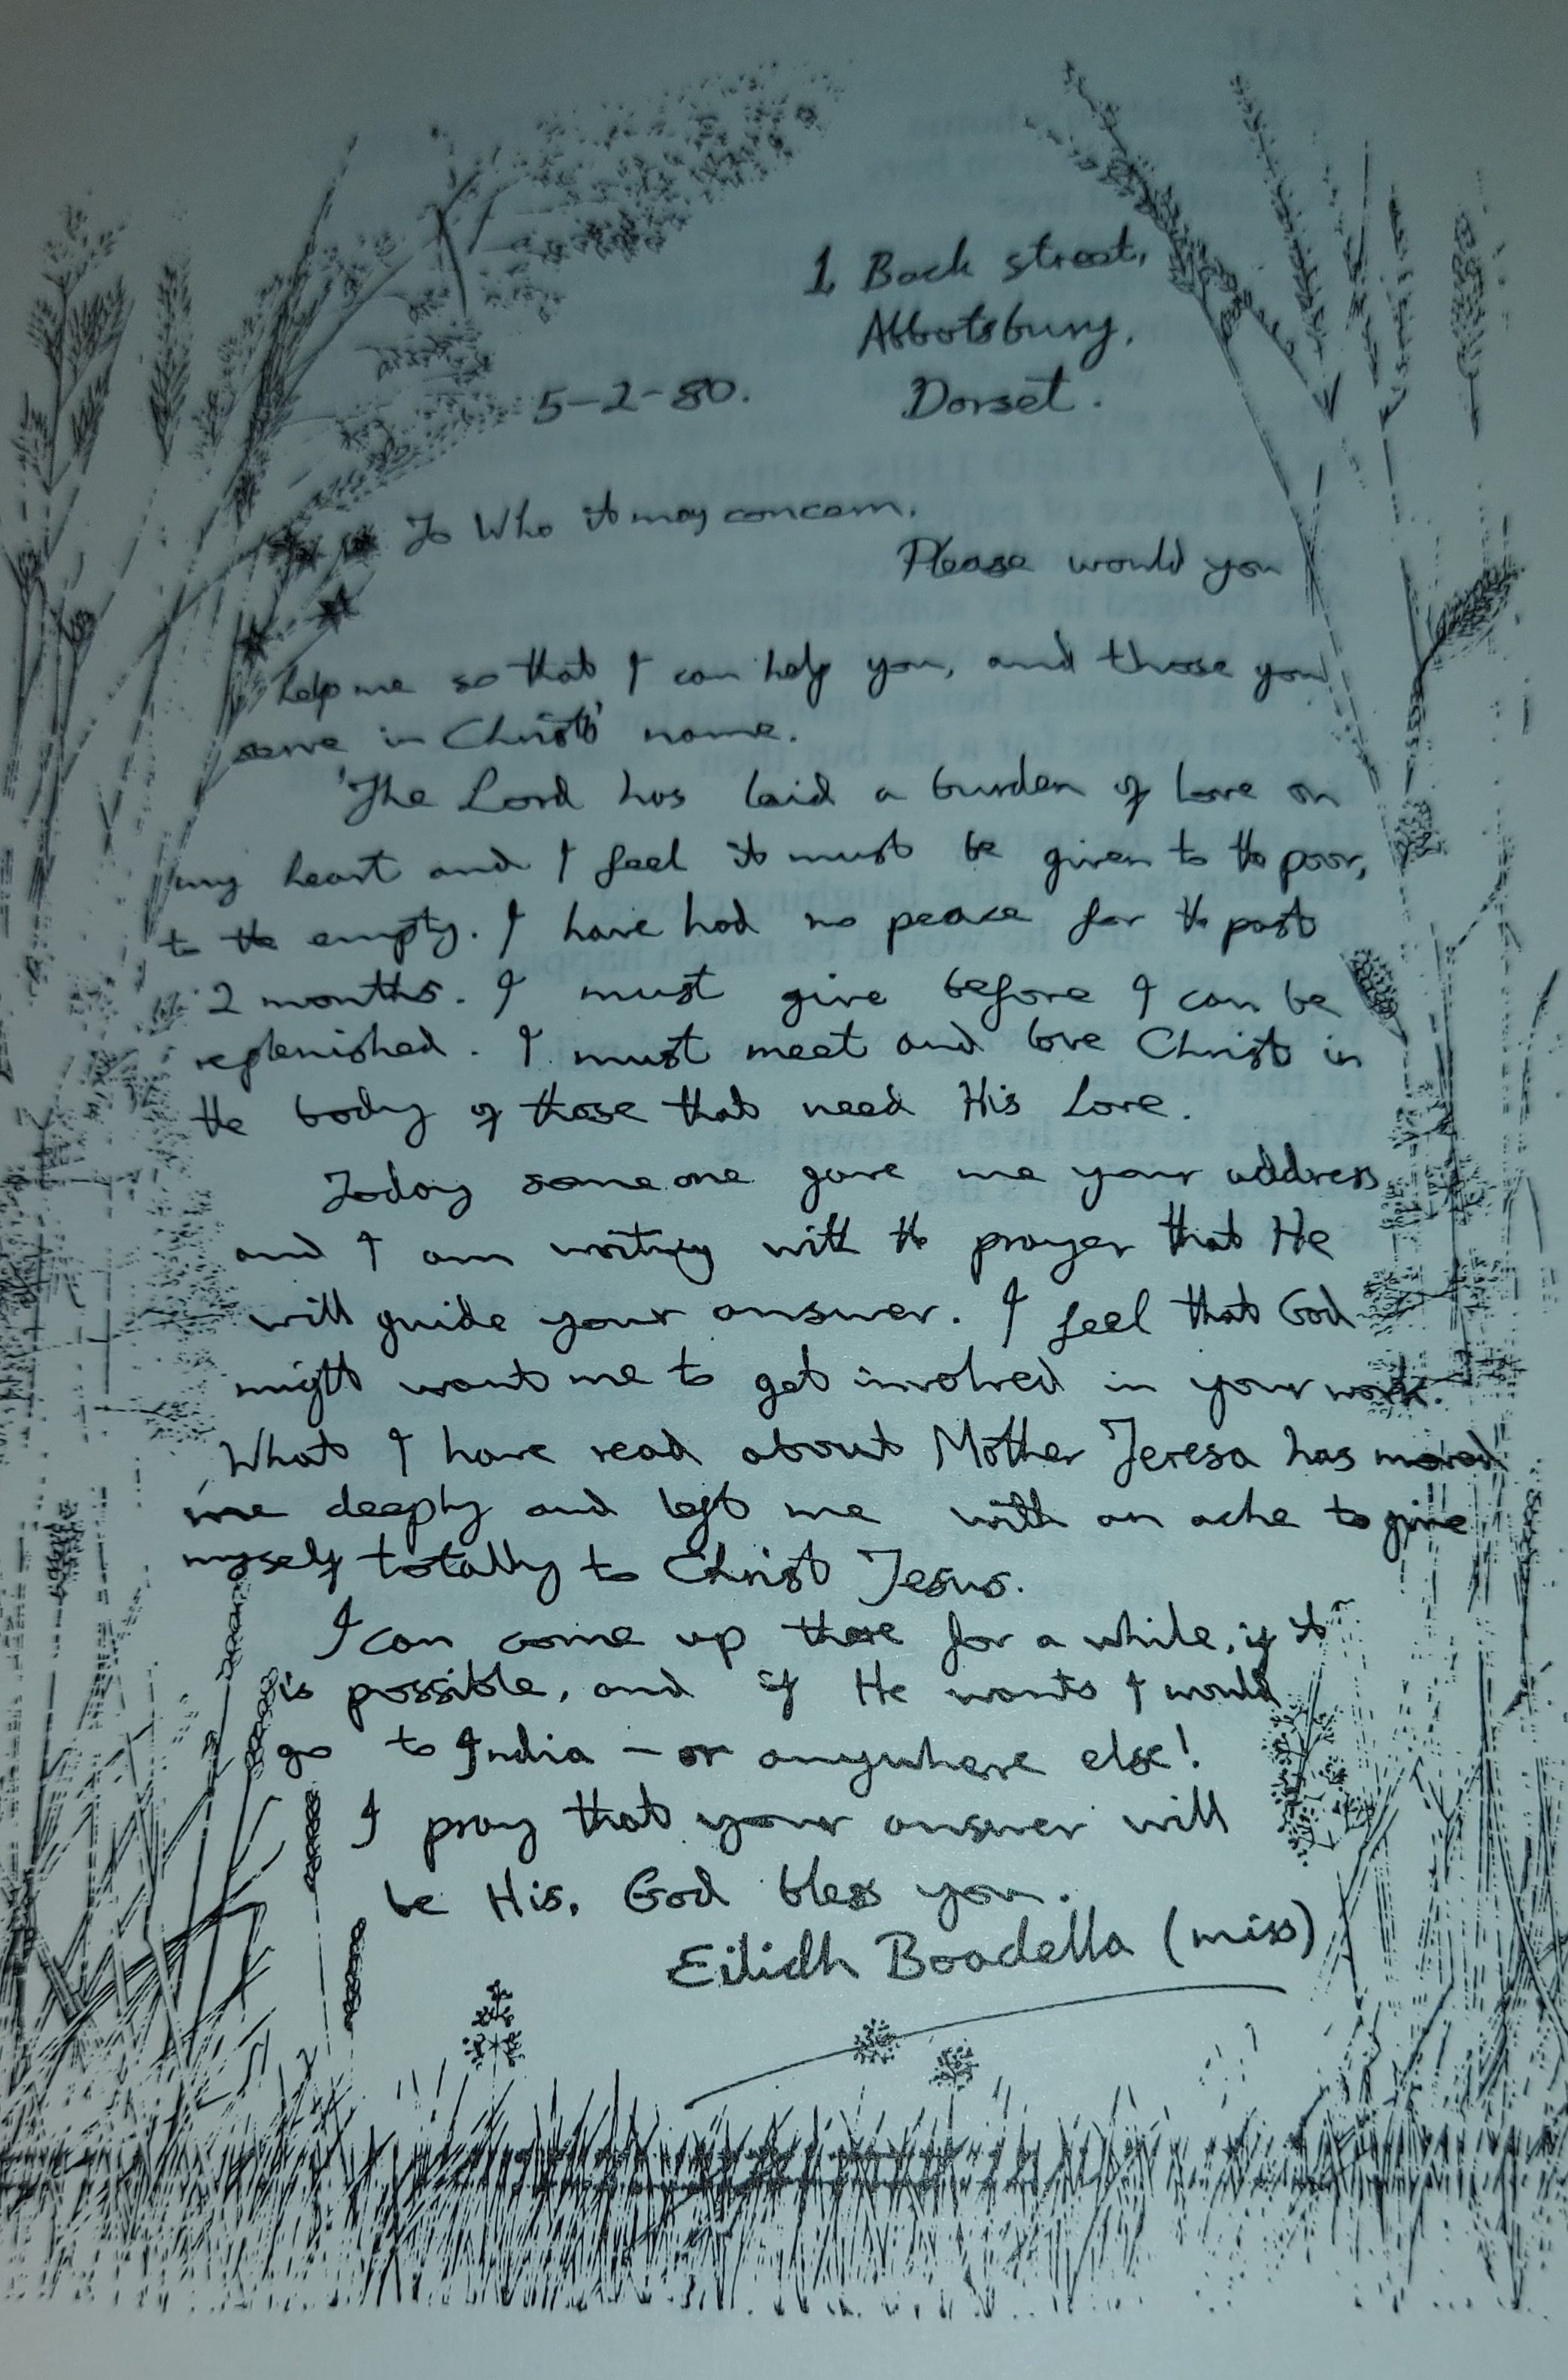 1 Back street,
Abbotsbury,
5-2-80. Dorset.
To Who it may concern.
Please would you
help me so that I can help you, and those you
serve in Christs' name.
The Lord has laid a burden of love on
my heart and I feel it must be given to the poor,
to the empty. I have had no peace for the past
2 months. I must give before I can be
replenished. I must meet and love Christ in
the body of those that need His Love.
Today someone gave me your address
and I am writing with the prayer that He
will guide your answer. I feel that God
might want me to get involved in your work.
What I have read about Mother Teresa has moved
me deeply and left me with an ache to give
myself totally to Christ Jesus.
I can come up there for a while, if it
is possible, and if He wants I would
go to India - or anywhere else!
I pray that your answer will
be His. God bless you.
Eilidh Boadella (miss)